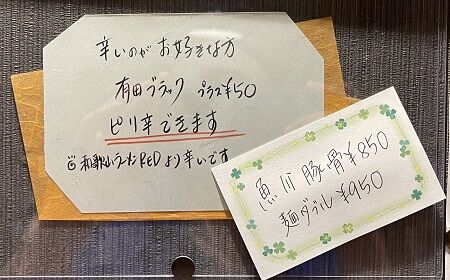 辛いのがお好きな方
有田ブラック プラス¥50
ピリ辛できます
和歌山ラーメンREDより辛いです
魚介豚骨¥850
麺ダブル¥950